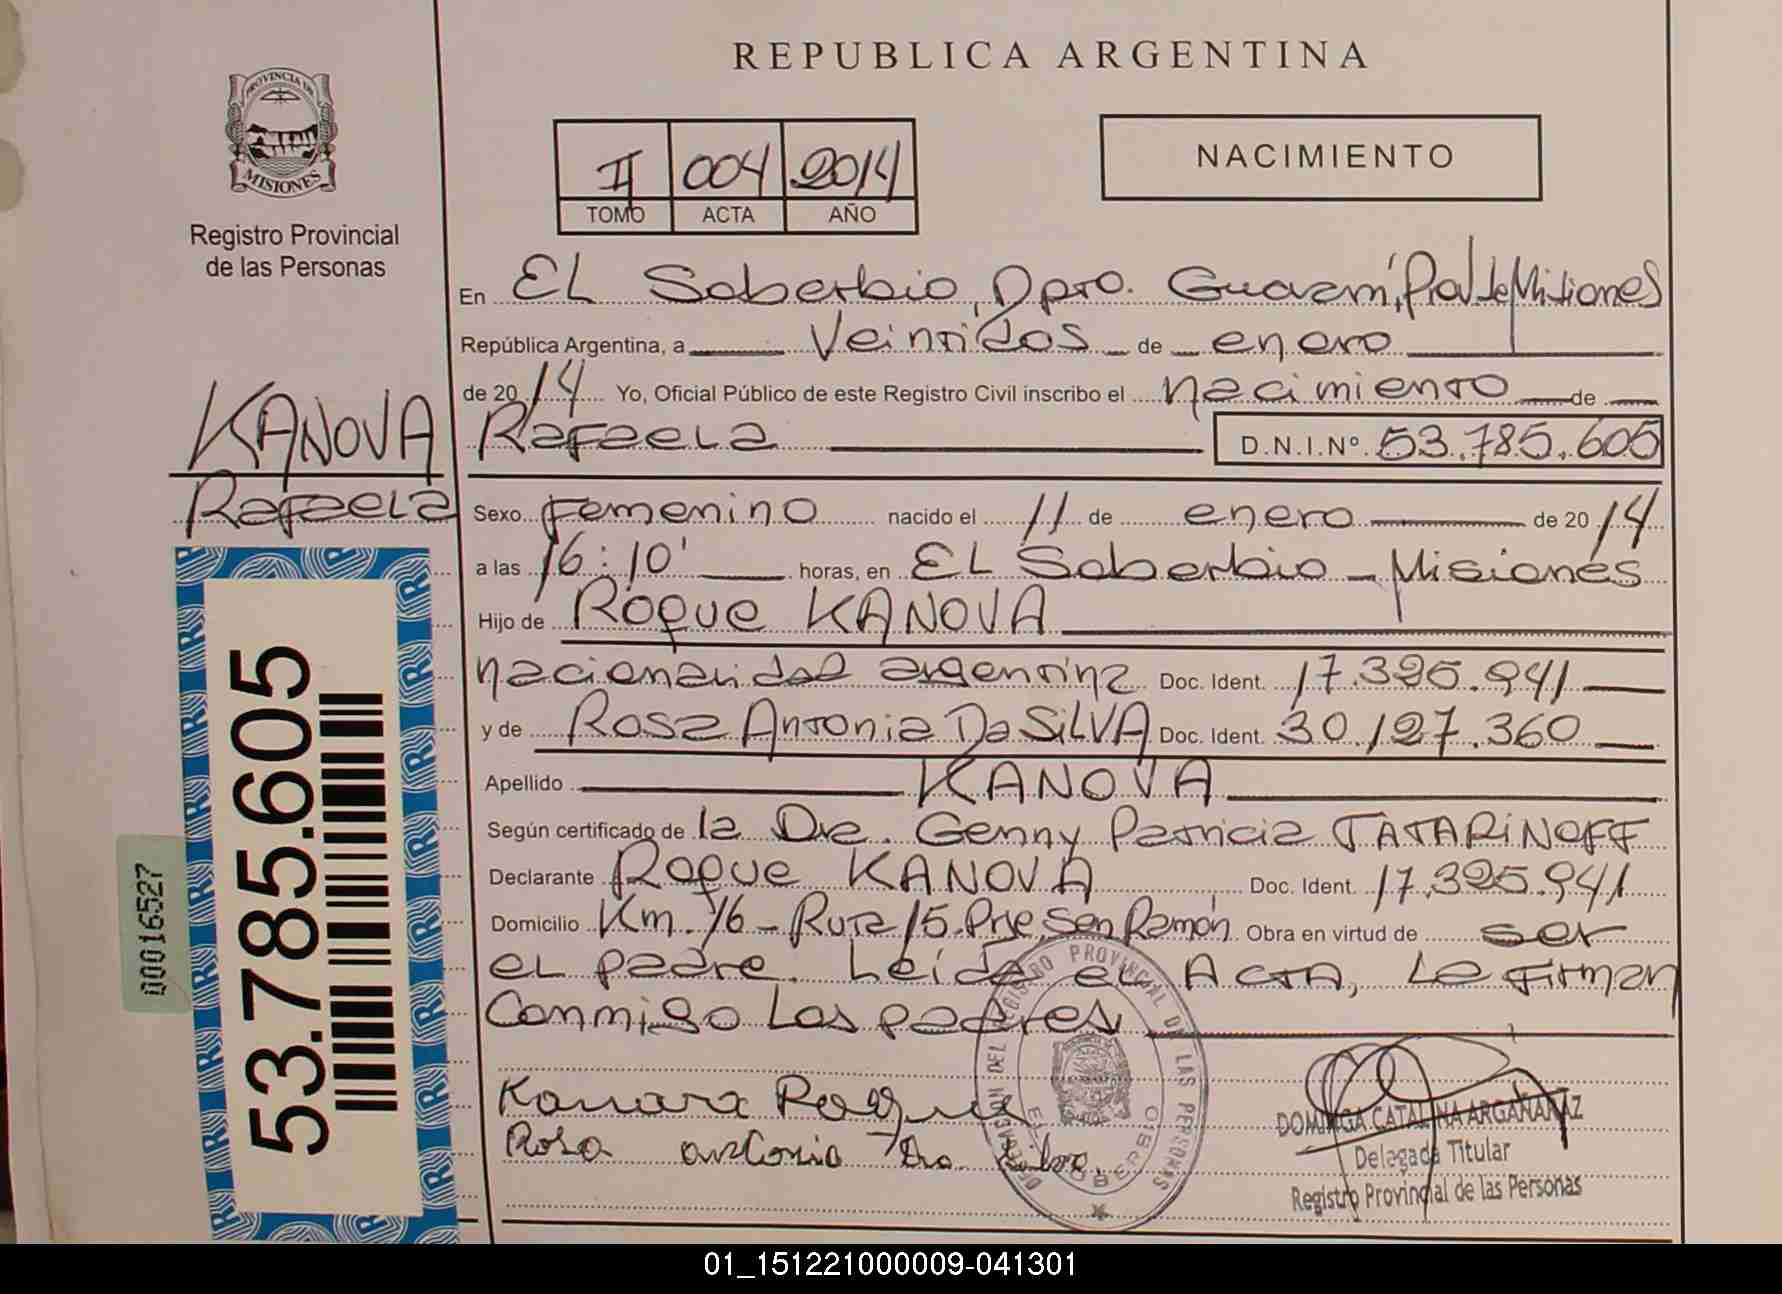 REPUBLICA ARGENTINA
PROVINCIA DE
MISIONES
Registro Provincial
de las Personas
II 004 2014
TOMO ACTA AÑO
NACIMIENTO
En EL Soberbio, Dpto. Guaraní, Prov de Misiones
República Argentina, a Veintidos de enero
de 2014 Yo, Oficial Público de este Registro Civil inscribo el nacimiento de
KANOVA
Rafaela
Rafaela D.N.I.Nº 53.785.605
Sexo Femenino nacido el 11 de enero de 2014
a las 16:10' horas, en EL Soberbio - Misiones
Hijo de Roque KANOVA
nacionalidad argentina Doc. Ident. 17.325.941
y de Rosa Antonia Da SiLVA Doc. Ident. 30.127.360
Apellido KANOVA
Según certificado de la Dra. Genny Patricia TATARiNOFF
Declarante Roque KANOVA Doc. Ident. 17.325.941
Domicilio Km. 16 - Ruta 15. Pje San Ramón Obra en virtud de ser
eL padre. Leída eL ACTA, La firman
Conmigo Los padres
Rosa antonia Da
DELEGACION DEL REGISTRO PROVINCIAL DE LAS PERSONAS
EL SOBERBIO
DOMINGA CATALINA ARGAÑARAZ
Delegada Titular
Registro Provincial de las Personas
53.785.605
00016527
01_151221000009-041301